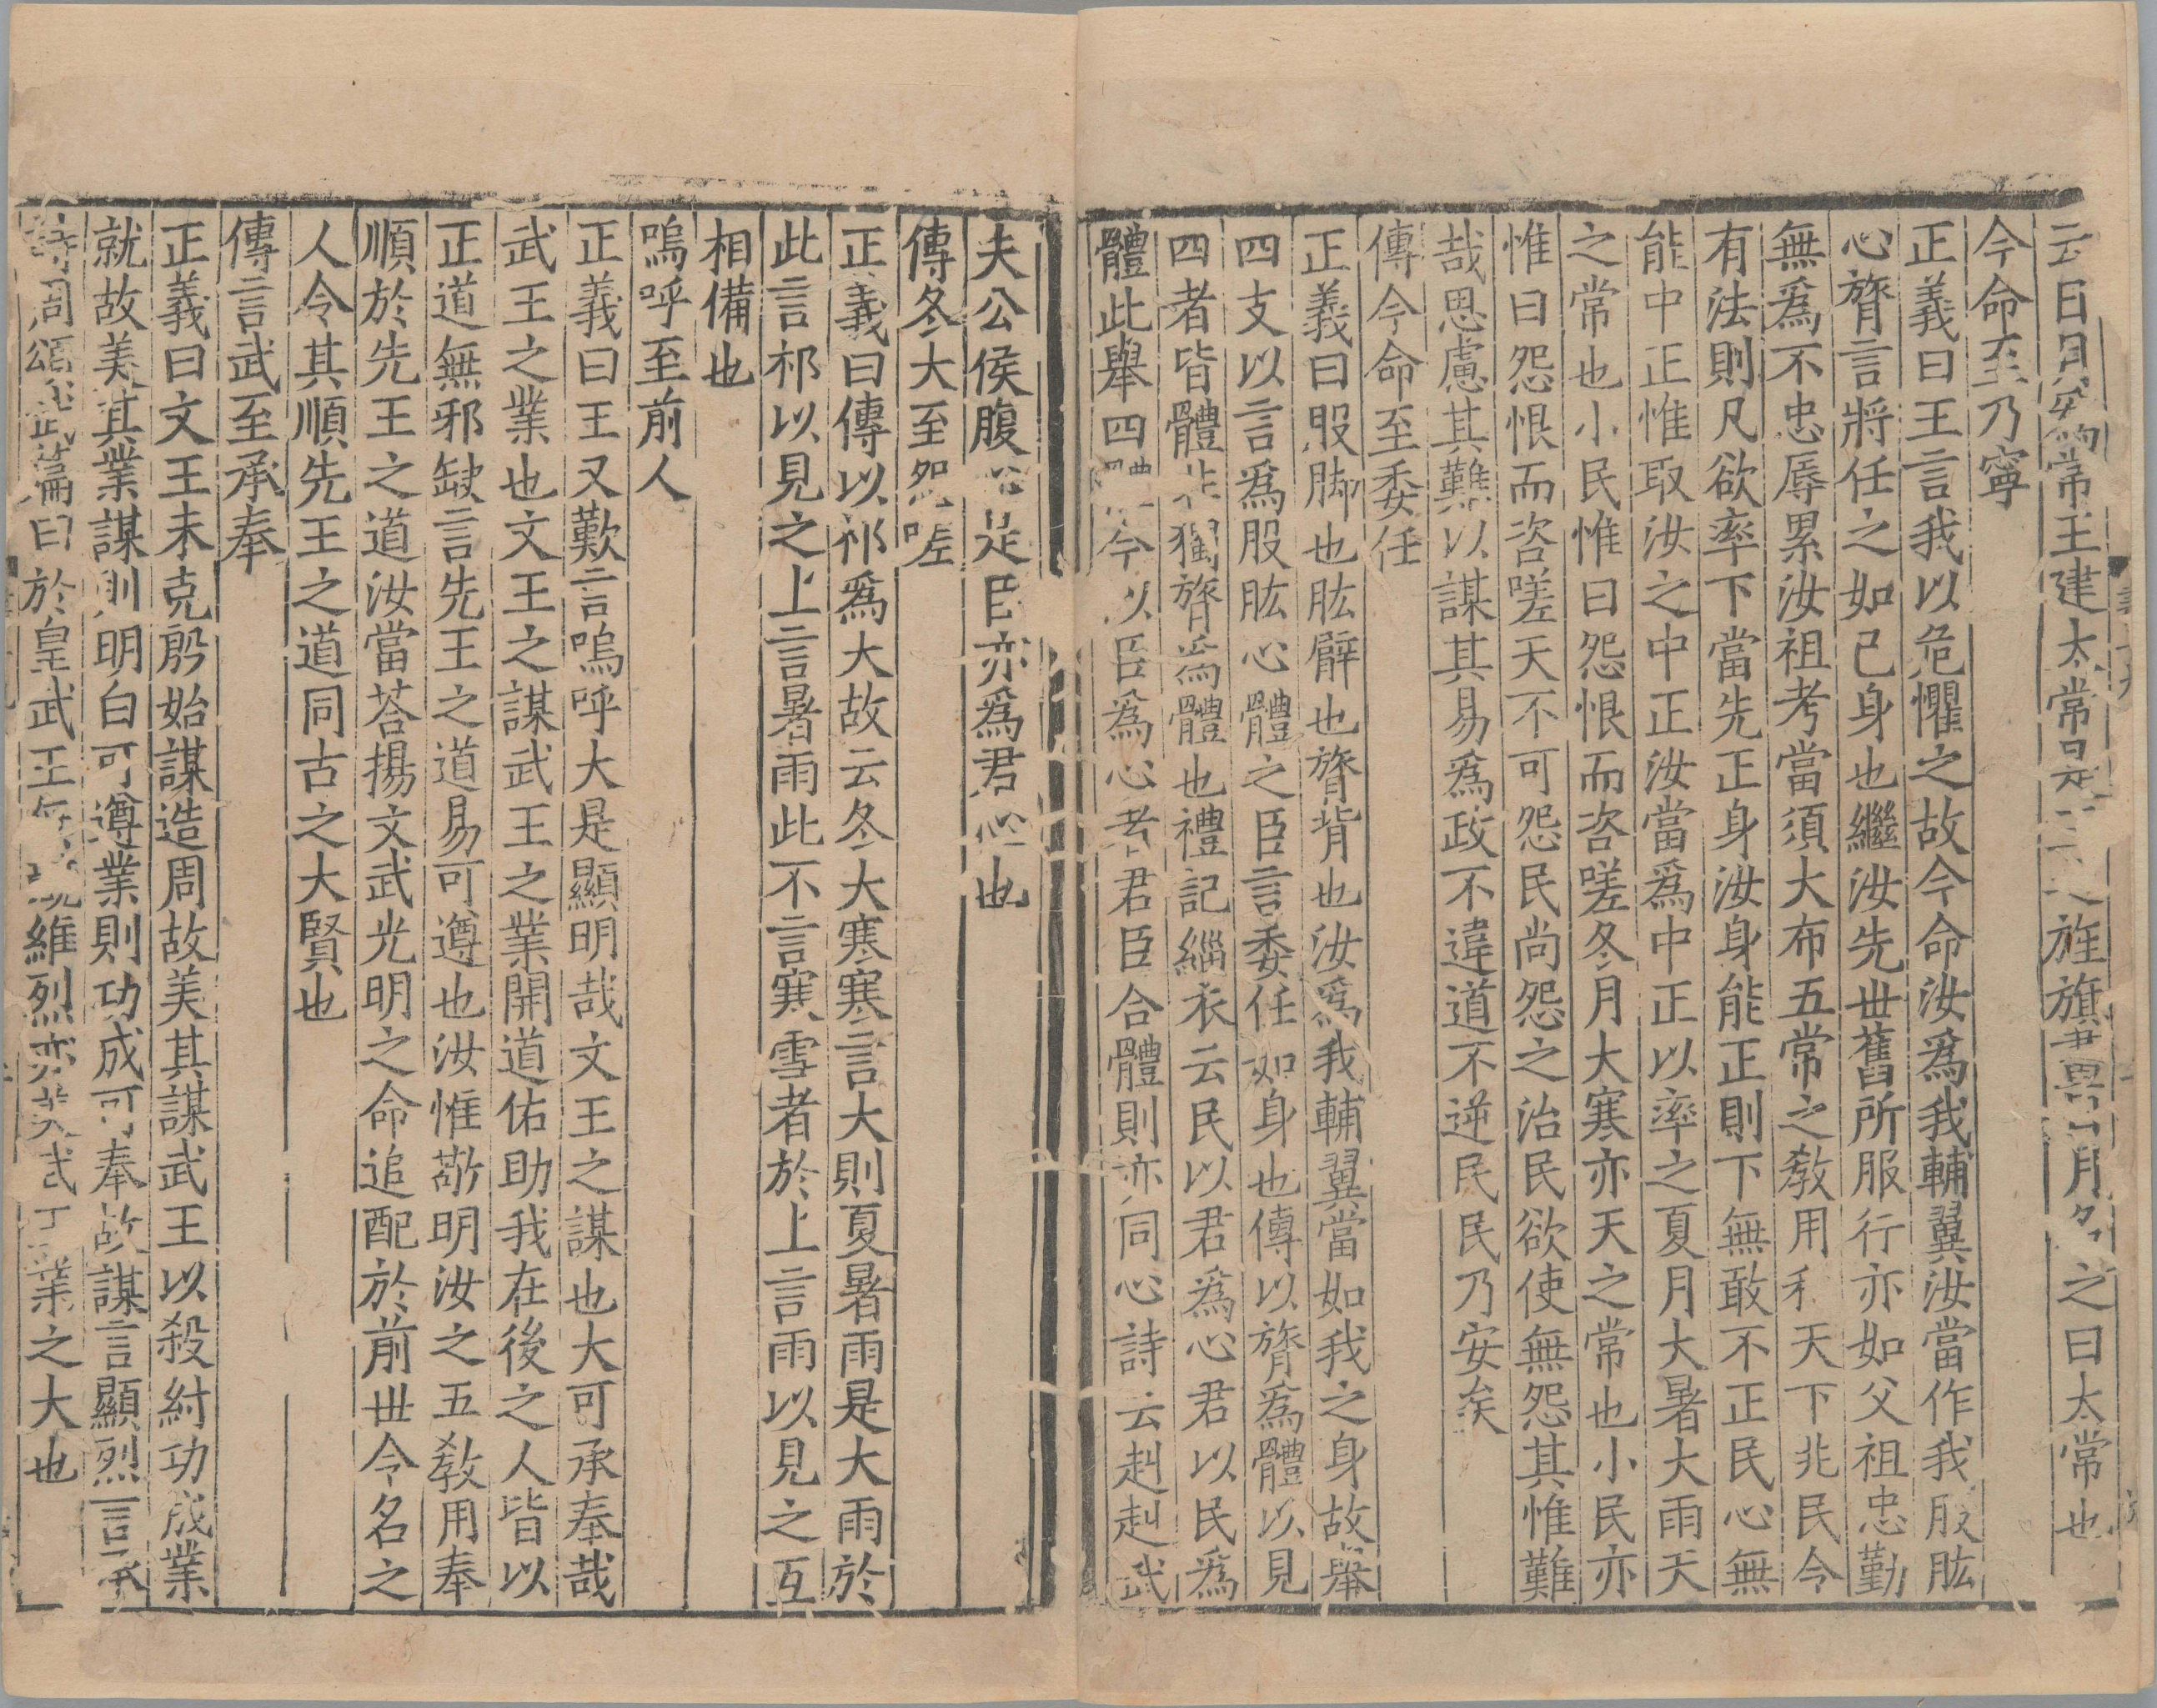 云日月爲常王建太常是王之旌旗畫日月名之曰太常也
今命至乃寧
正義曰王言我以危懼之故今命汝爲我輔翼汝當作我股肱
心膂言將任之如己身也繼汝先世舊所服行亦如父祖忠勤
無爲不忠辱累汝祖考當須大布五常之敎用和天下兆民令
有法則凡欲率下當先正身汝身能正則下無敢不正民心無
能中正惟取汝之中正汝當爲中正以率之夏月大暑大雨天
之常也小民惟曰怨恨而咨嗟冬月大寒亦天之常也小民亦
惟曰怨恨而咨嗟天不可怨民尚怨之治民欲使無怨其惟難
哉思慮其難以謀其易爲政不違道不逆民民乃安矣
傳今命至委任
正義曰股脚也肱臂也膂背也汝爲我輔翼當如我之身故舉
四支以言爲股肱心體之臣言委任如身也傳以膂爲體以見
四者皆體非獨膂爲體也禮記緇衣云民以君爲心君以民爲
體此舉四體今以臣爲心者君臣合體則亦同心詩云赳赳武
夫公侯腹心是臣亦爲君心也
傳冬大至怨嗟
正義曰傳以祁爲大故云冬大寒寒言大則夏暑雨是大雨於
此言祁以見之上言暑雨此不言寒雪者於上言雨以見之互
相備也
嗚呼至前人
正義曰王又歎言嗚呼大是顯明哉文王之謀也大可承奉哉
武王之業也文王之謀武王之業開道佑助我在後之人皆以
正道無邪缺言先王之道易可遵也汝惟敬明汝之五敎用奉
順於先王之道汝當荅揚文武光明之命追配於前世令名之
人令其順先王之道同古之大賢也
傳言武至承奉
正義曰文王未克殷始謀造周故美其謀武王以殺紂功成業
就故美其業謀則明白可遵業則功成可奉故謀言顯烈言承
詩周頌武篇曰於皇武王無競維烈亦美武王業之大也